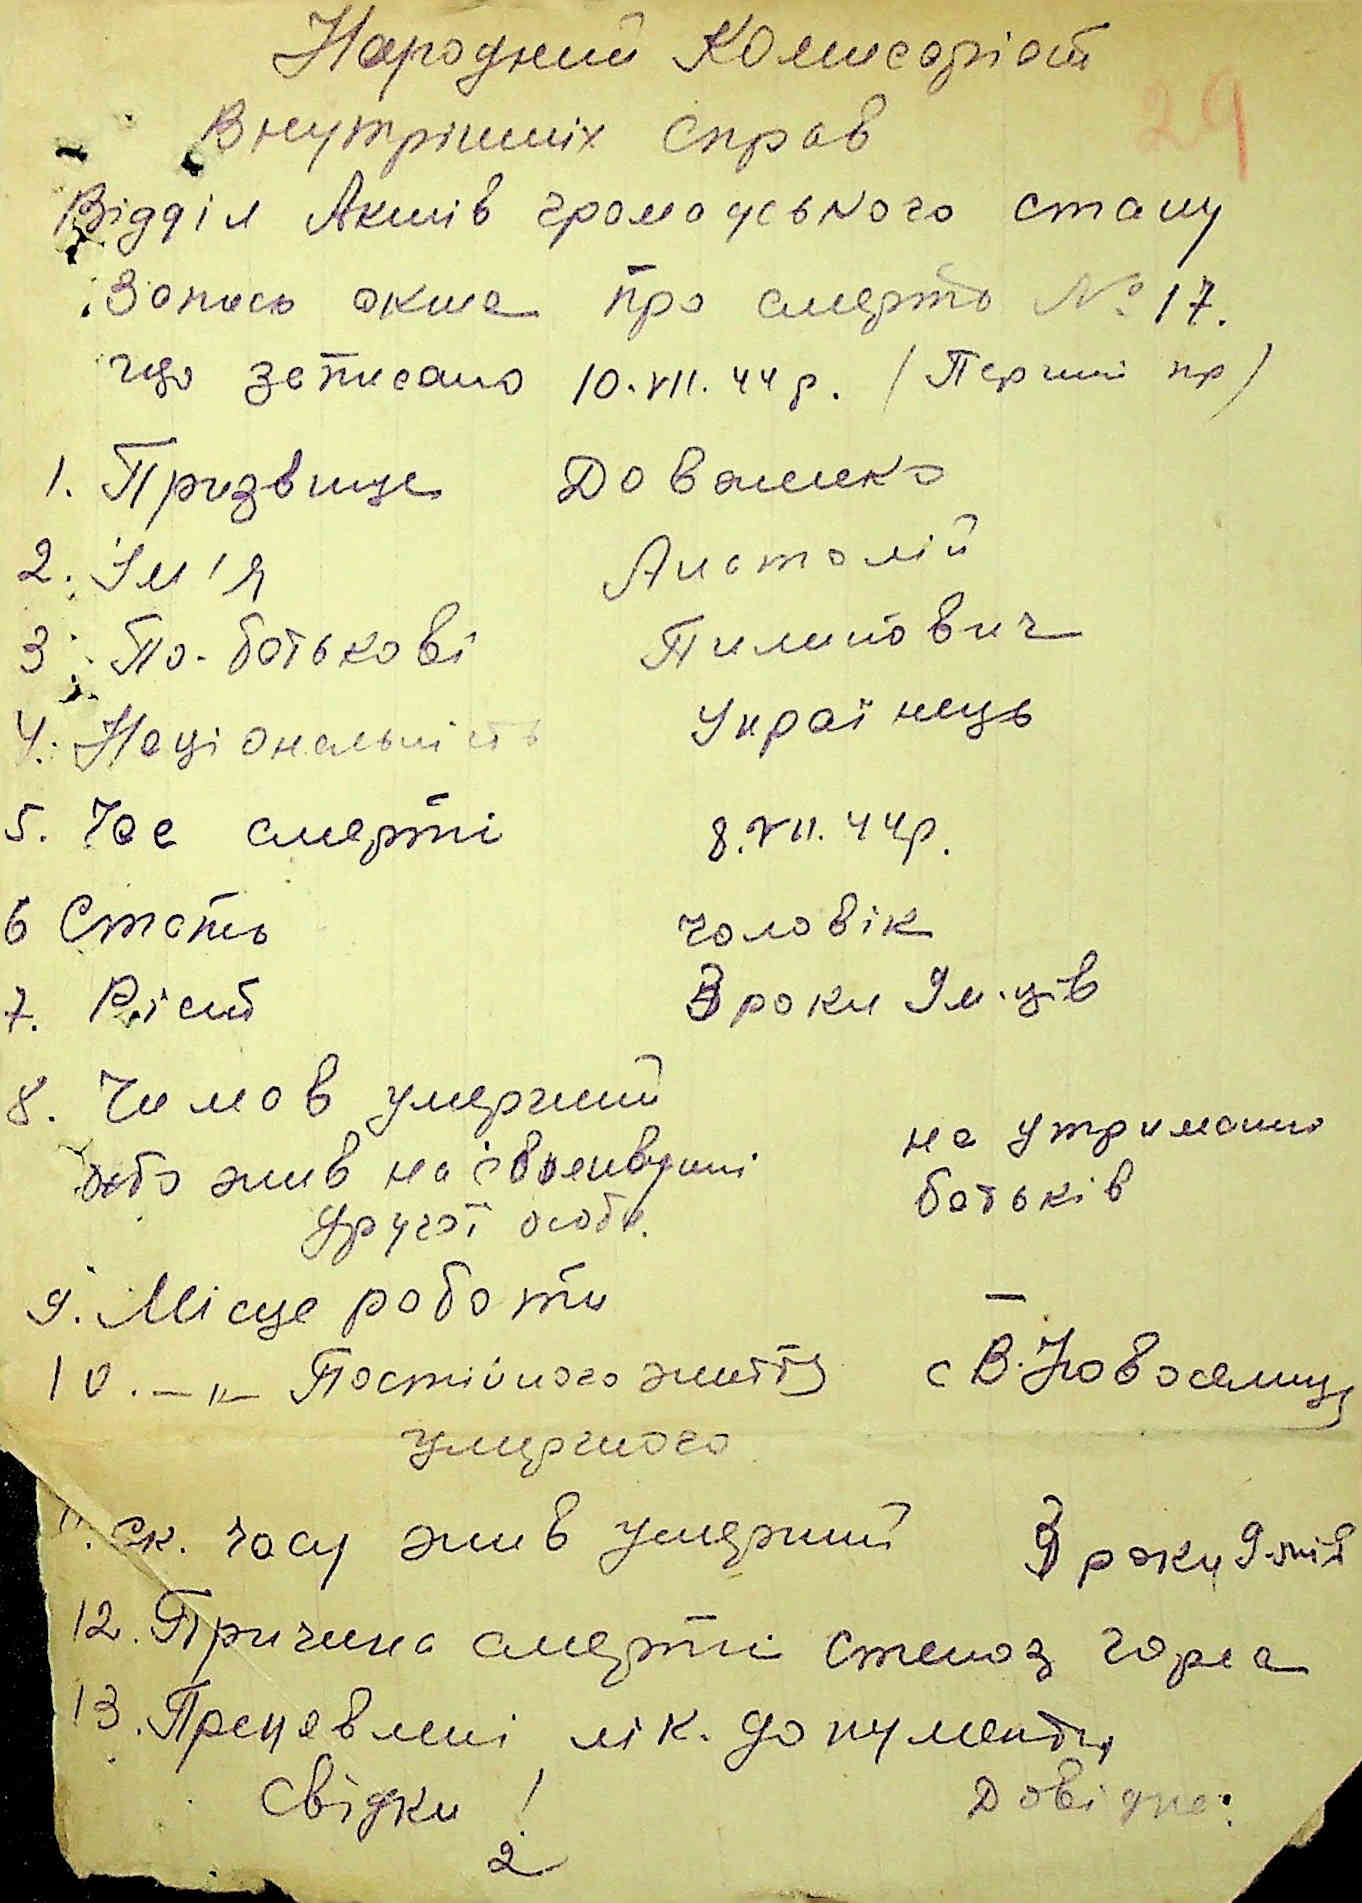 Народний Комисаріат
29
Внутрішніх справ
Відділ Актів громадського стану
Запись акта про смерть № 17.
що записано 10.VII.44р. (Перший пр)
1. Призвище Доваленко
2. Ім'я Анатолій
3. По-батькові Пилипович
4. Національність Українець
5. Час смерті 8.VII.44р.
6 Стать чоловік
7. Вісит 3 роки 9 м-ців
8. Чи мов умерший
або жив на
другої особи.
на утриманні
батьків
9. Місце роботи —
10. —„— Постійного життя с В.Новоселиця
умершого
11. Ск. часу жив умерший 3 роки 9 м-ців
12. Причина смерті стеноз горла
13. Преднявлені лік. документи
Свідки 1 Довідка:
2